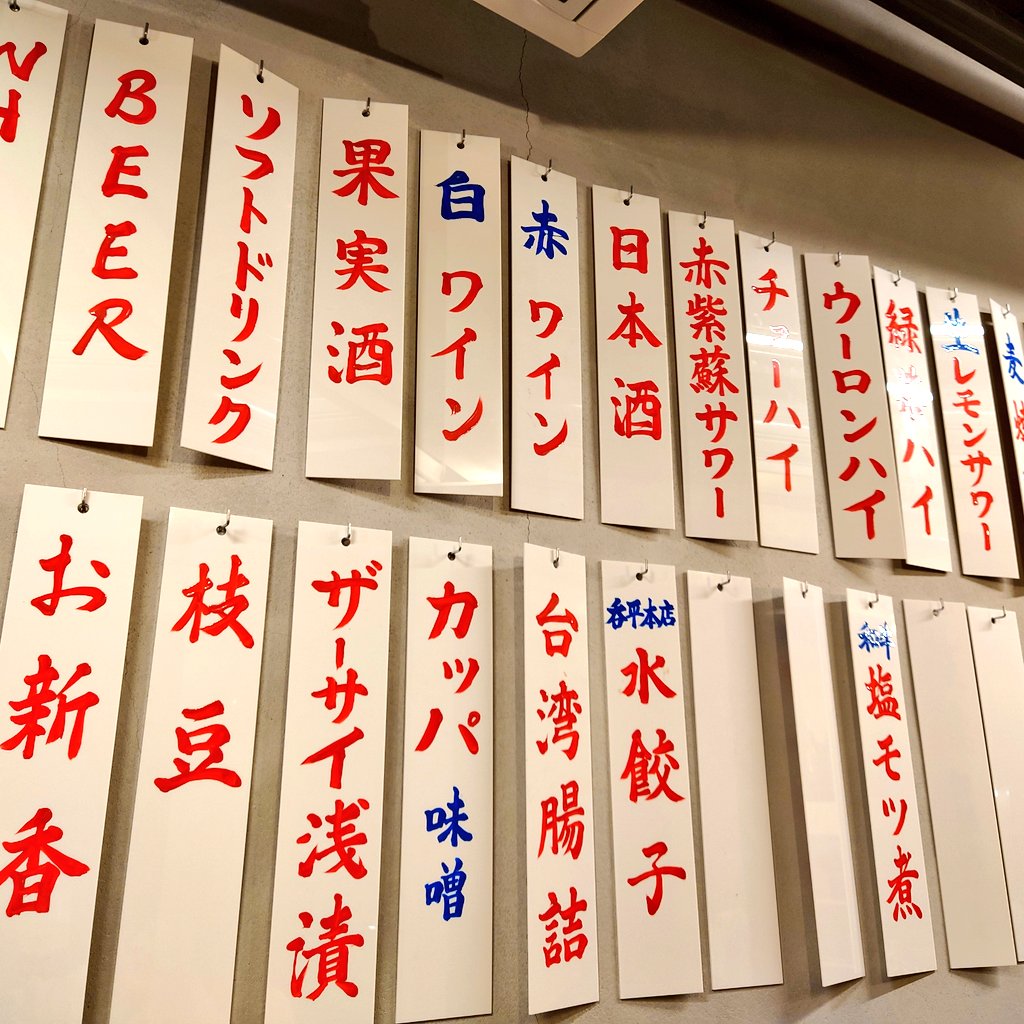 WH
BEER
ソフトドリンク
果実酒
白ワイン
赤ワイン
日本酒
赤紫蘇サワー
チューハイ
ウーロンハイ
緑茶ハイ
生レモンサワー
麦焼
お新香
枝豆
ザーサイ浅漬
カッパ味噌
台湾腸詰
呑平本店
水餃子
塩モツ煮